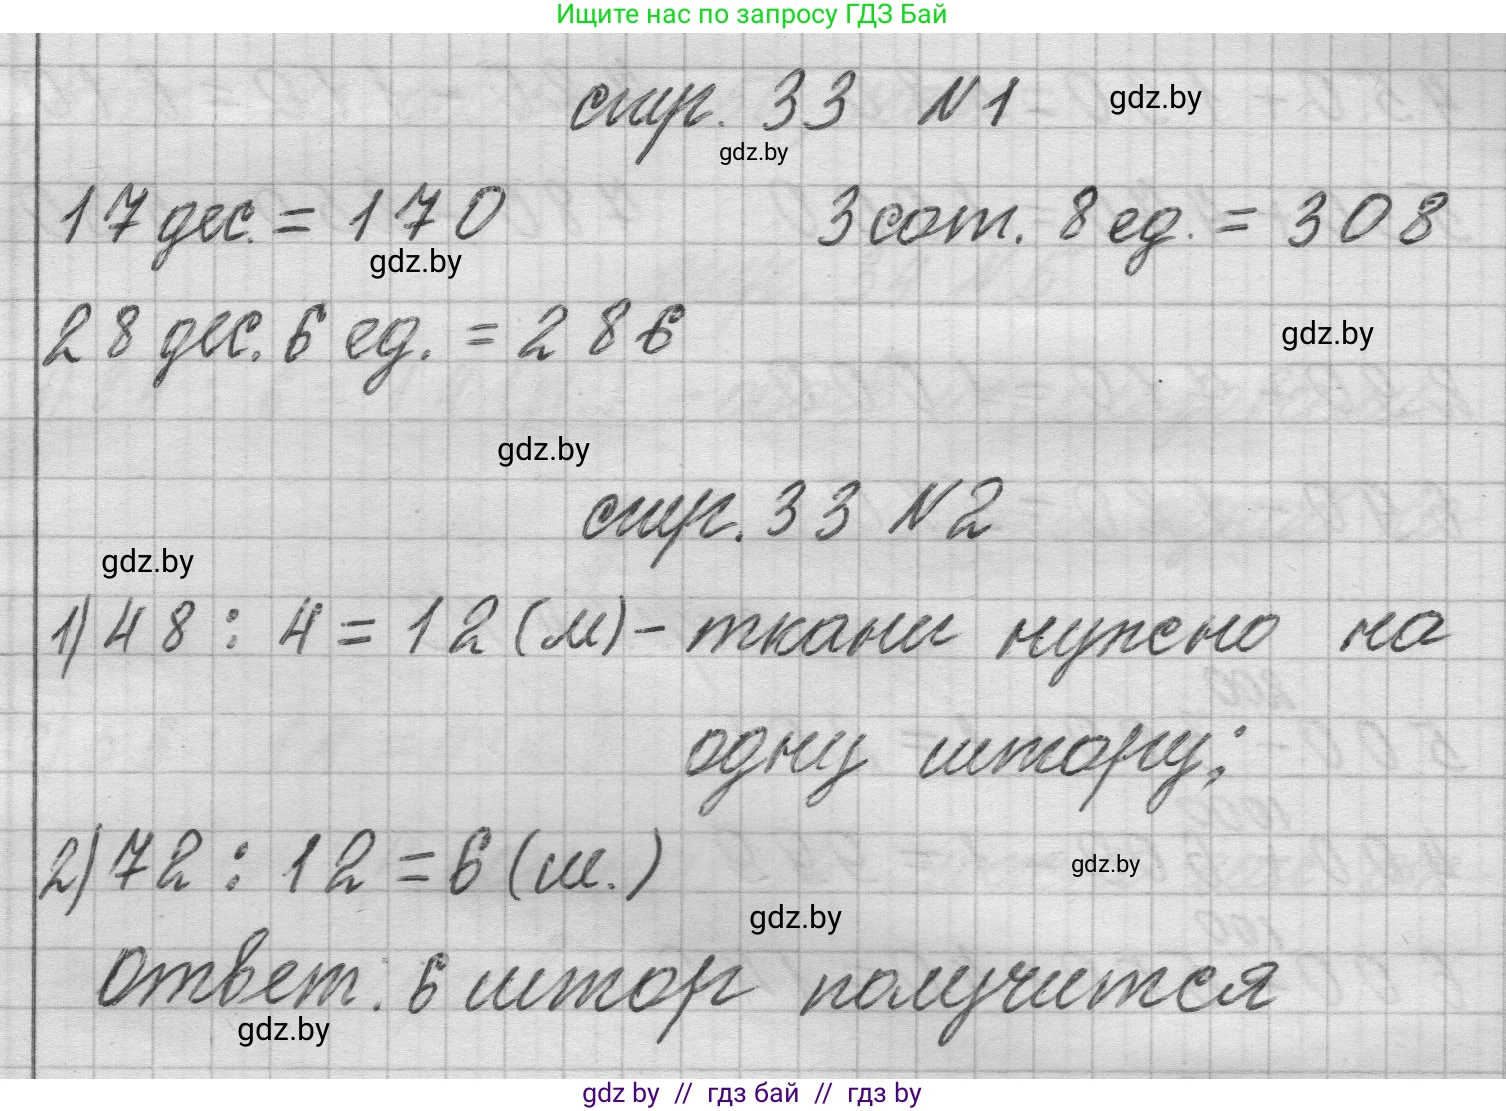 Ищите нас по запросу ГДЗ Бай
стр. 33 N1 gdz.by
gdz.by
17 дес. = 170 3 сот. 8 ед. = 308
gdz.by
28 дес. 6 ед. = 286
gdz.by
gdz.by
стр. 33 N2
gdz.by
1) 48 : 4 = 12 (м) - ткани нужно на
одну штору;
2) 72 : 12 = 6 (ш.)
gdz.by
gdz.by
Ответ: 6 штор получится
gdz.by
gdz by // гдз бай // гдз by